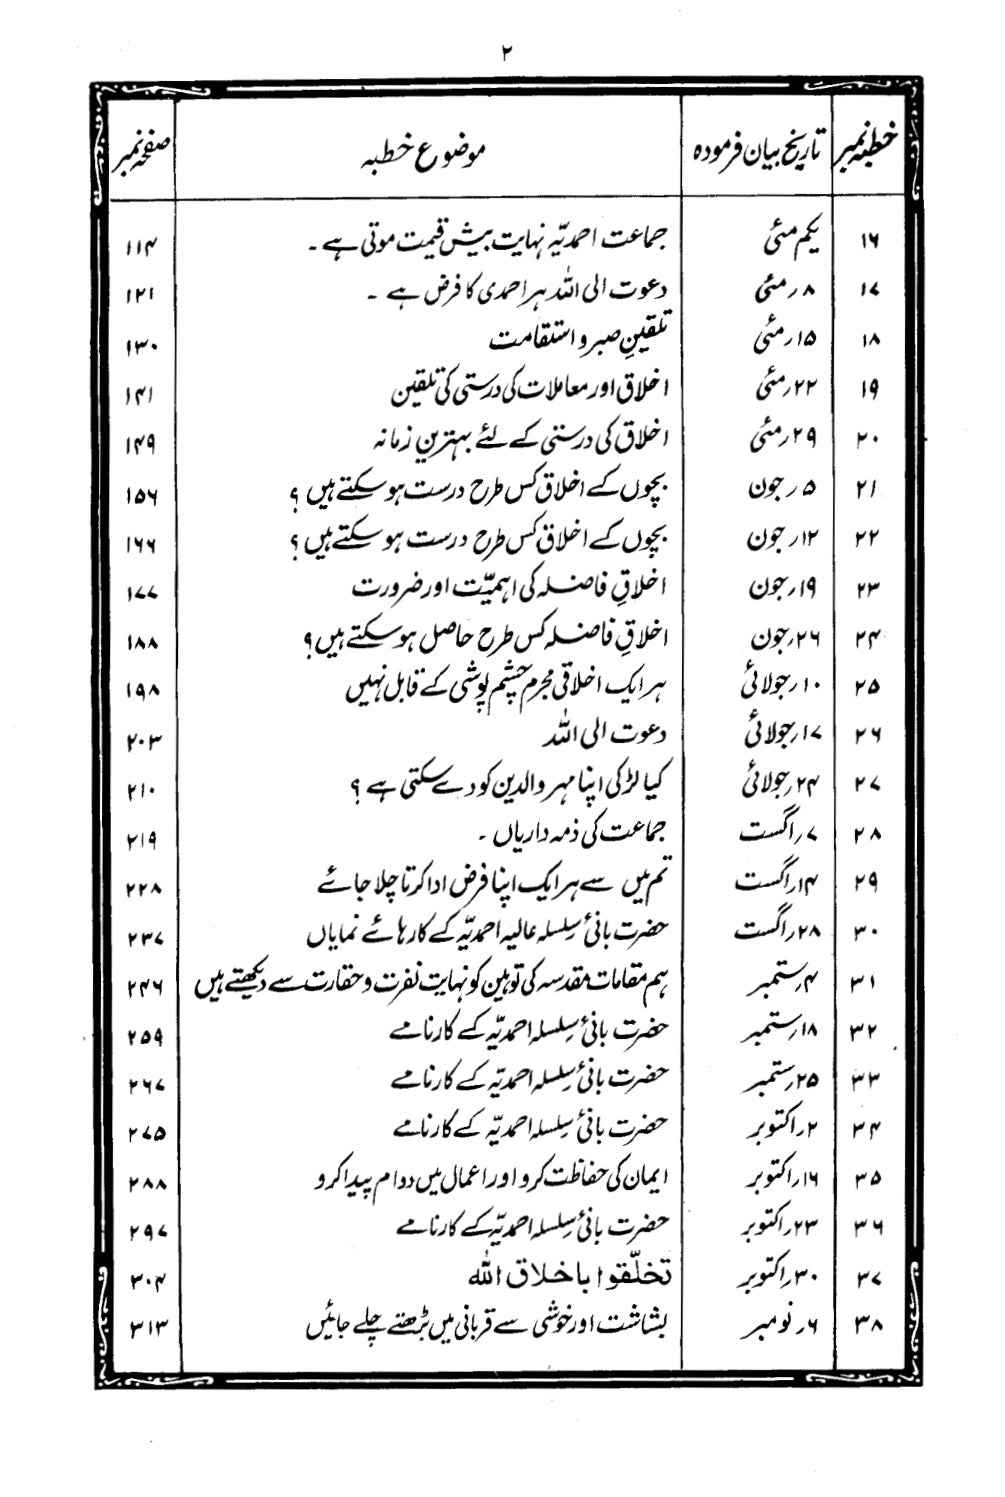 ۲
خطبہ نمبر تاریخ بیان فرمودہ موضوع خطبہ صفحہ نمبر
۱۶ یکم مئی جماعت احمدیّہ نہایت بیش قیمت موتی ہے ۔ ۱۱۴
۱۷ ۸؍مئی دعوت الی اللہ ہر احمدی کا فرض ہے ۔ ۱۲۱
۱۸ ۱۵؍مئی تلقینِ صبر و استقامت ۱۳۰
۱۹ ۲۲؍مئی اخلاق اور معاملات کی درستی کی تلقین ۱۴۱
۲۰ ۲۹؍مئی اخلاق کی درستی کے لئے بہترین زمانہ ۱۴۹
۲۱ ۵؍جون بچوں کے اخلاق کس طرح درست ہو سکتے ہیں ؟ ۱۵۶
۲۲ ۱۲؍جون بچوں کے اخلاق کس طرح درست ہو سکتے ہیں ؟ ۱۶۶
۲۳ ۱۹؍جون اخلاقِ فاضلہ کی اہمیّت اور ضرورت ۱۷۷
۲۴ ۲۶؍جون اخلاقِ فاضلہ کس طرح حاصل ہو سکتے ہیں؟ ۱۸۸
۲۵ ۱۰؍جولائی ہر ایک اخلاقی مجرم چشم پوشی کے قابل نہیں ۱۹۸
۲۶ ۱۷؍جولائی دعوت الی اللہ ۲۰۳
۲۷ ۲۴؍جولائی کیا لڑکی اپنا مہر والدین کو دے سکتی ہے ؟ ۲۱۰
۲۸ ۷؍اگست جماعت کی ذمہ داریاں ۔ ۲۱۹
۲۹ ۱۴؍اگست تم میں سے ہر ایک اپنا فرض ادا کرتا چلا جائے ۲۲۸
۳۰ ۲۸؍اگست حضرت بانیٔ سِلسلہ عالیہ احمدیّہ کے کارہائے نمایاں ۲۳۷
۳۱ ۴؍ستمبر ہم مقامات مقدسہ کی توہین کو نہایت نفرت و حقارت سے دیکھتے ہیں ۲۴۶
۳۲ ۱۸؍ستمبر حضرت بانیٔ سِلسلہ احمدیّہ کے کارنامے ۲۵۹
۳۳ ۲۵؍ستمبر حضرت بانیٔ سِلسلہ احمدیّہ کے کارنامے ۲۶۷
۳۴ ۲؍اکتوبر حضرت بانیٔ سِلسلہ احمدیّہ کے کارنامے ۲۷۵
۳۵ ۱۶؍اکتوبر ایمان کی حفاظت کرو اور اعمال میں دوام پیدا کرو ۲۸۸
۳۶ ۲۳؍اکتوبر حضرت بانیٔ سِلسلہ احمدیّہ کے کارنامے ۲۹۷
۳۷ ۳۰؍اکتوبر تخلّقوا باخلاق اللہ ۳۰۴
۳۸ ۶؍نومبر بشاشت اور خوشی سے قربانی میں بڑھتے چلے جائیں ۳۱۳